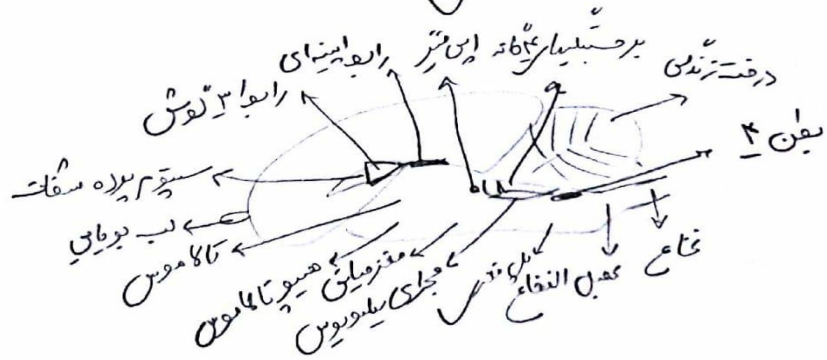 درخت زندگی
برجستگیهای ۴ گانه
اپی فیز
رابط پینه‌ای
رابط ۳ گوش
بطن ۴
سپتوم پرده شفاف
لب بویایی
تالاموس
هیپوتالاموس
مغز میانی
مجرای سیلویوس
پل مغزی
بصل النخاع
نخاع